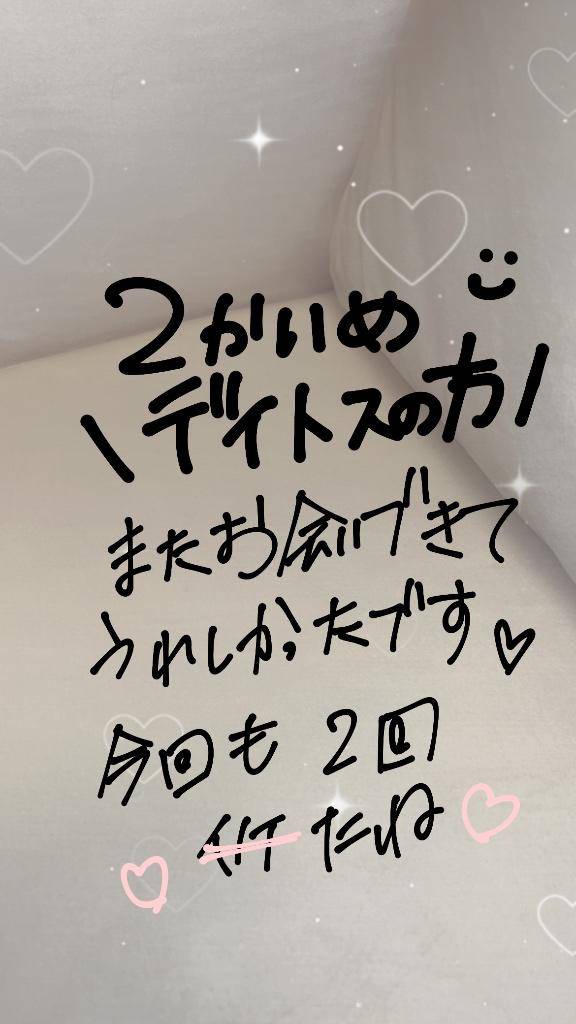 2かいめ
\デイトスの方/
またお会いできて
うれしかったです♡
今回も2回
イけたね